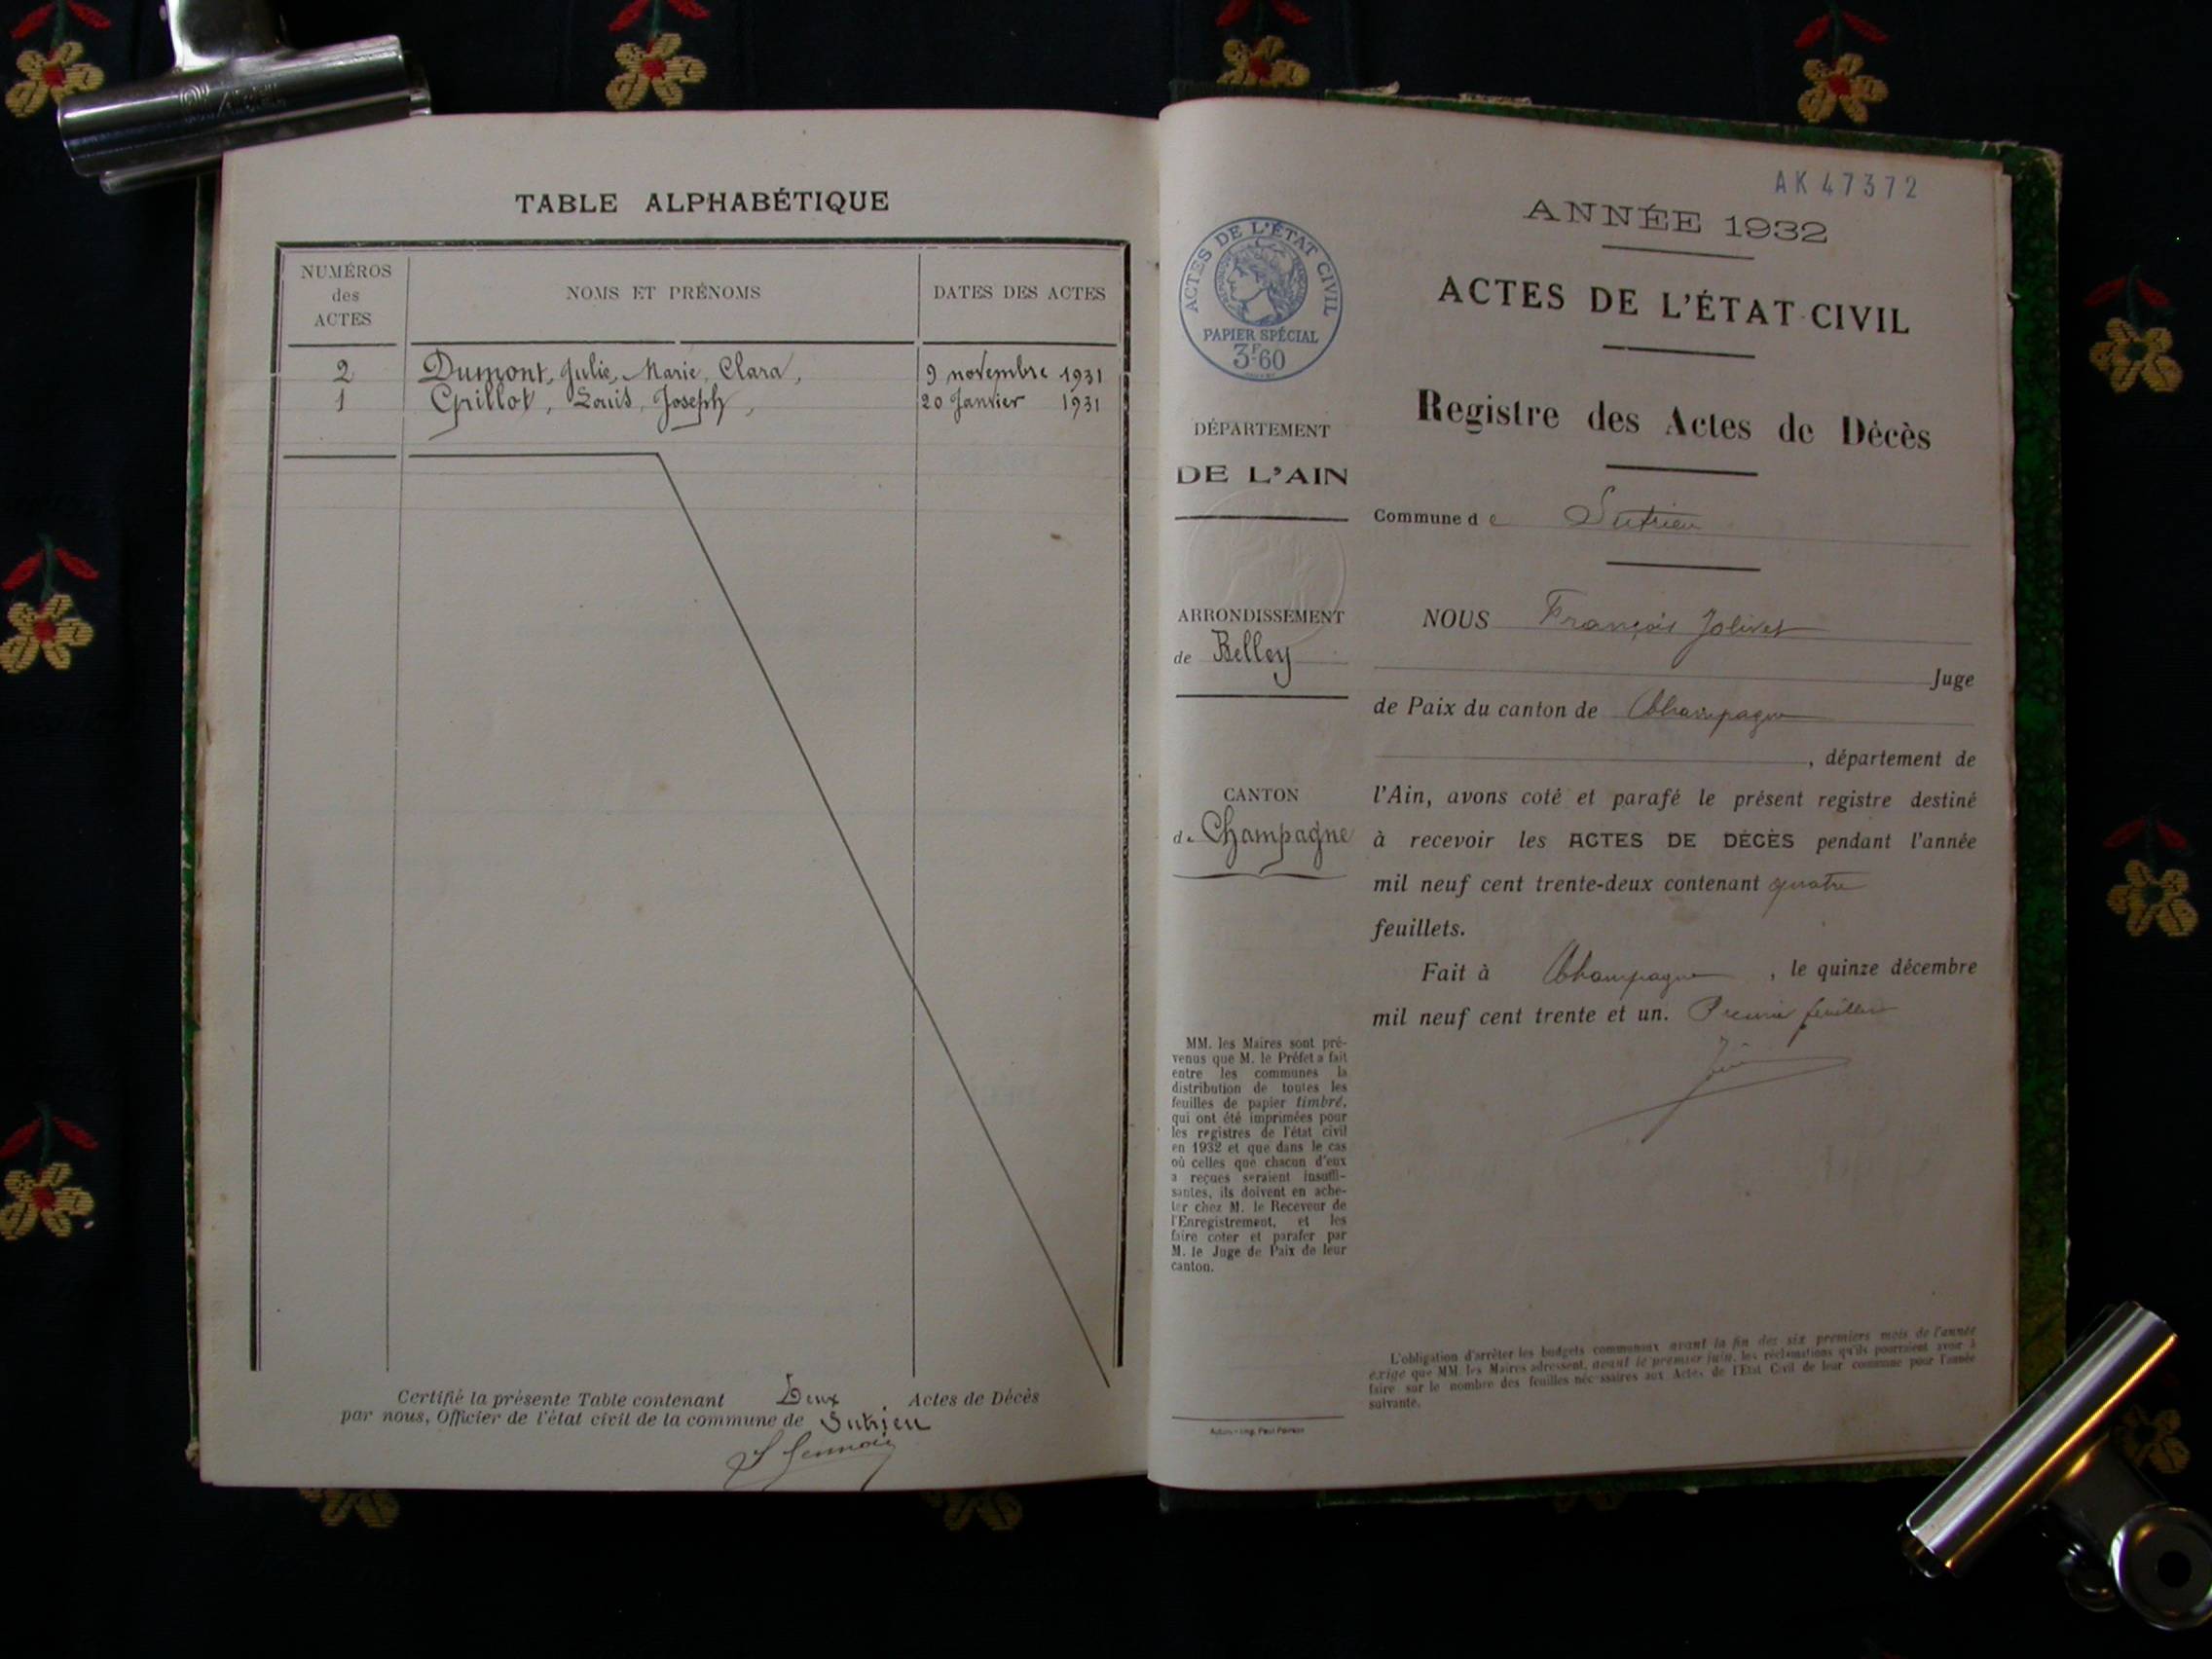 TABLE ALPHABÉTIQUE
NUMÉROS
des
ACTES
NOMS ET PRÉNOMS
DATES DES ACTES
2 Dumont, Julie, Marie, Clara, 9 novembre 1931
1 Grillot, Louis, Joseph, 20 Janvier 1931
Certifié la présente Table contenant Deux Actes de Décès
par nous, Officier de l'état civil de la commune de Sutrieu
AK 47372
ANNÉE 1932
ACTES DE L'ÉTAT CIVIL
Registre des Actes de Décès
ACTES DE L'ÉTAT CIVIL
PAPIER SPÉCIAL
3F60
DÉPARTEMENT
DE L'AIN
ARRONDISSEMENT
de Belley
CANTON
de Champagne
MM. les Maires sont pré-
venus que M. le Préfet a fait
entre les communes la
distribution de toutes les
feuilles de papier timbré,
qui ont été imprimées pour
les registres de l'état civil
en 1932 et que dans le cas
où celles que chacun d'eux
a reçues seraient insuffi-
santes, ils doivent en ache-
ter chez M. le Receveur de
l'Enregistrement, et les
faire coter et parafer par
M. le Juge de Paix de leur
canton.
Commune de Sutrieu
NOUS François Jolivet
Juge
de Paix du canton de Champagne
, département de
l'Ain, avons coté et parafé le présent registre destiné
à recevoir les ACTES DE DÉCÈS pendant l'année
mil neuf cent trente-deux contenant quatre
feuillets.
Fait à Champagne, le quinze décembre
mil neuf cent trente et un. Premier feuillet
L'obligation d'arrêter les budgets communaux avant la fin des six premiers mois de l'année
exige que MM. les Maires adressent, avant le premier juin, les réclamations qu'ils pourraient avoir à
faire sur le nombre des feuilles nécessaires aux Actes de l'Etat Civil de leur commune pour l'année
suivante.